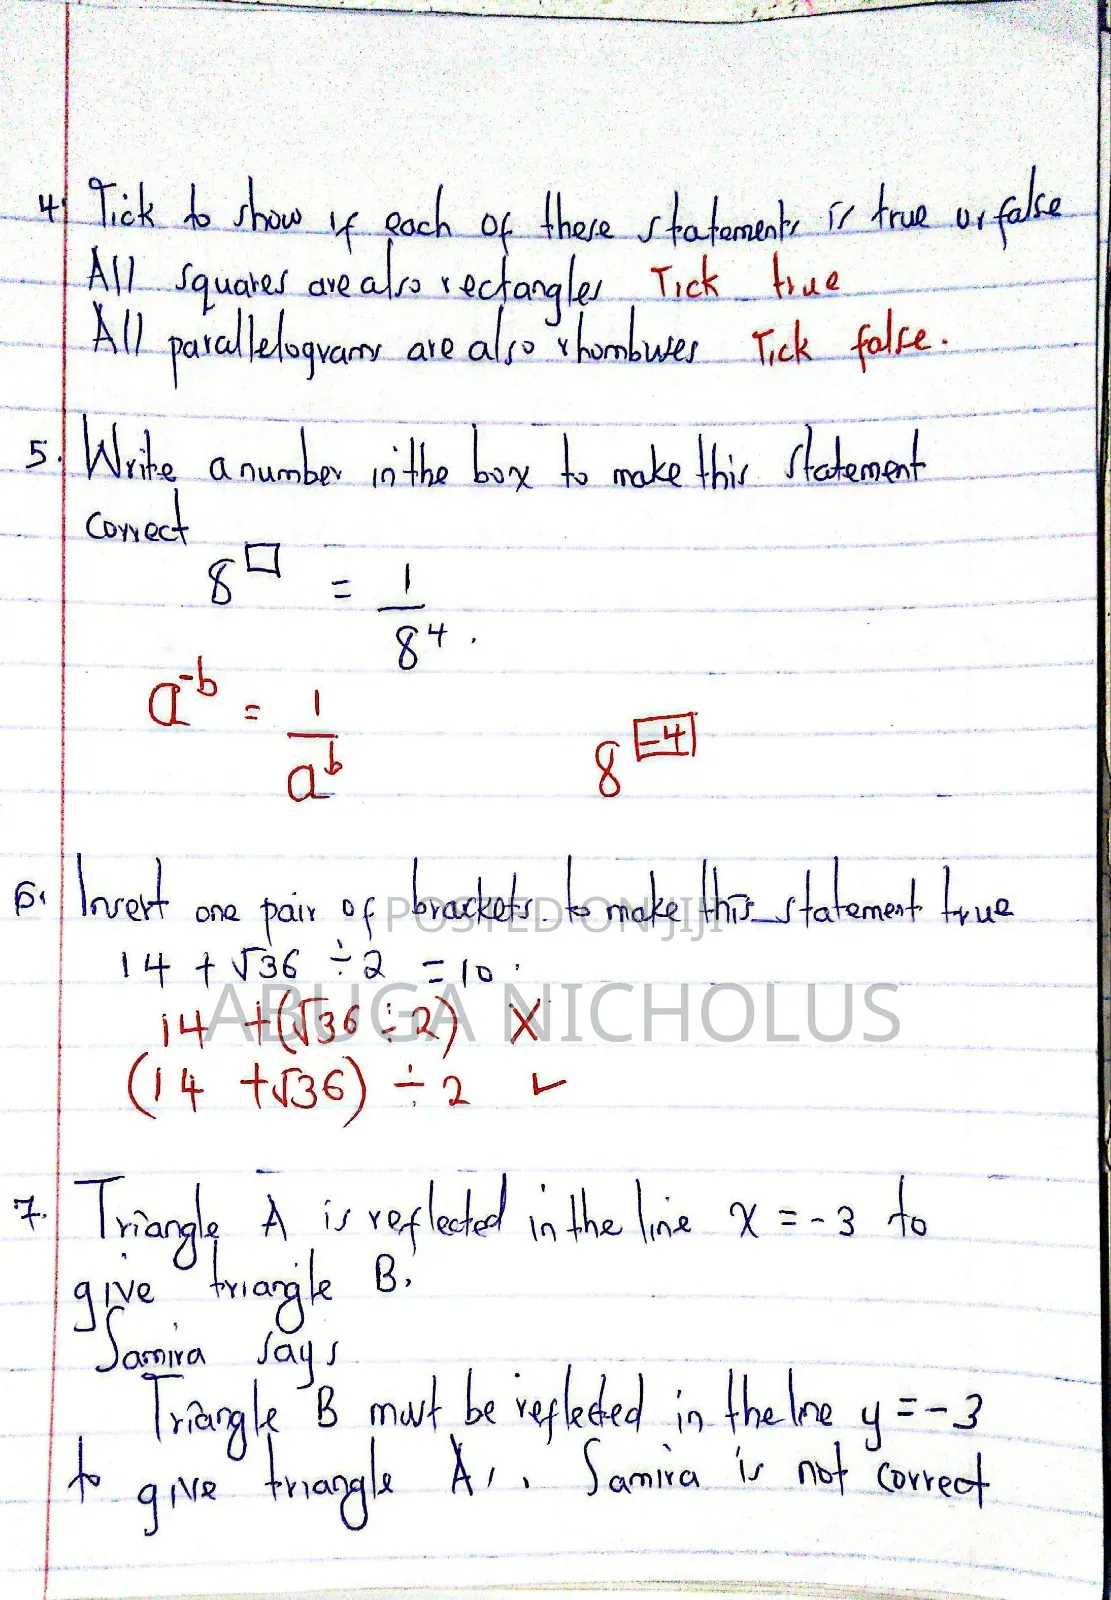 4. Tick to show if each of these statements is true or false
All squares are also rectangles Tick true
All parallelograms are also rhombuses Tick false.
5. Write a number in the box to make this statement
correct
8^□ = 1/8^4.
a^-b = 1/a^b 8^-4
6. Insert one pair of brackets to make this statement true
POSTED ON JIJI
14 + √36 ÷ 2 = 10.
ABUGA NICHOLUS
14 + (√36 ÷ 2) X
(14 + √36) ÷ 2 ✓
7. Triangle A is reflected in the line x = -3 to
give triangle B.
Samira says
Triangle B must be reflected in the line y = -3
to give triangle A,. Samira is not correct